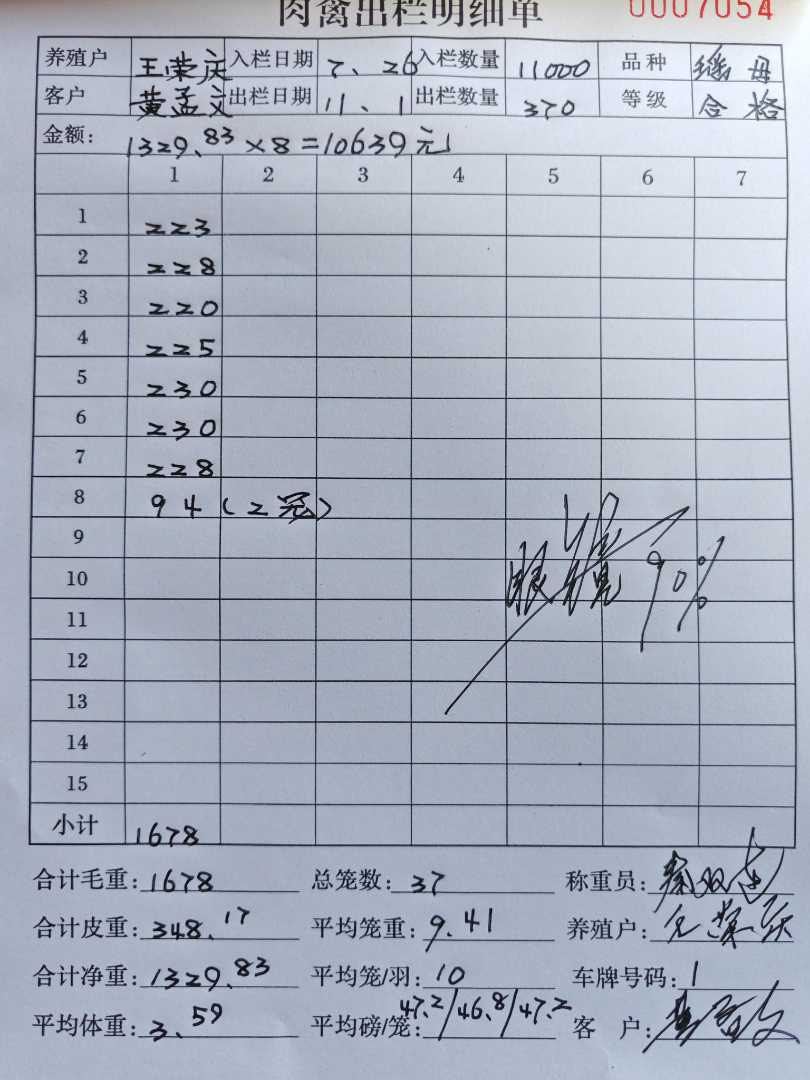 肉禽出栏明细单 0007054
养殖户 王荣庆 入栏日期 7、26 入栏数量 11000 品种 瑶母
客户 黄孟文 出栏日期 11、1 出栏数量 370 等级 合格
金额: 1329.83×8=10639元
1 2 3 4 5 6 7
1 223
2 228
3 220
4 225
5 230
6 230
7 228
8 94(2冠)
9
10 90%
11
12
13
14
15
小计 1678
合计毛重: 1678 总笼数: 37 称重员:
合计皮重: 348.17 平均笼重: 9.41 养殖户:
合计净重: 1329.83 平均笼/羽: 10 车牌号码: 1
平均体重: 3.59 平均磅/笼: 47.2/46.8/47.2 客 户: 黄孟文